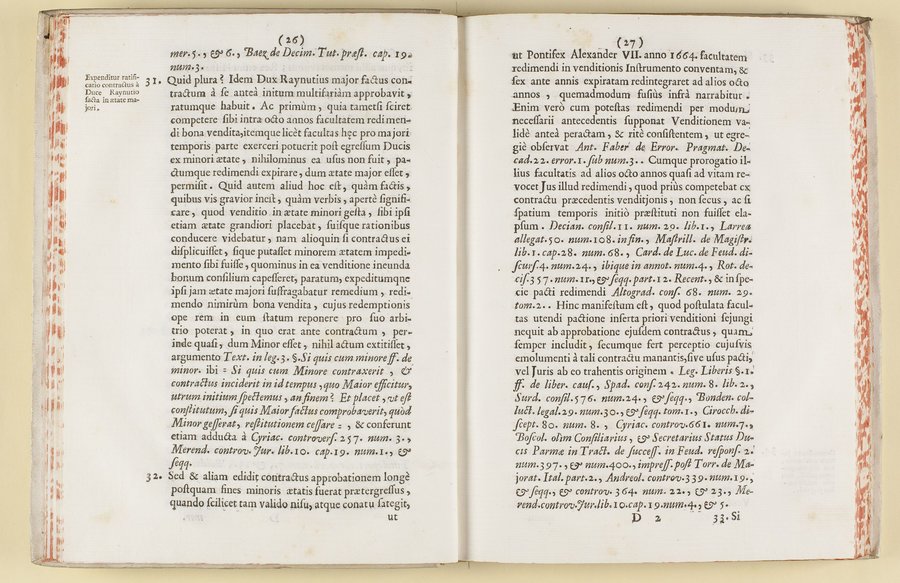 (26)
mer. 5., & 6., Baez de Decim. Tut. præst. cap. 19.
num. 3.
Expenditur ratifi-
catio contractus à
Duce Raynutio
facta in ætate ma-
jori.
31. Quid plura? Idem Dux Raynutius major factus con-
tractum à se anteà initum multifariàm approbavit,
ratumque habuit. Ac primùm, quia tametsi sciret
competere sibi intra octo annos facultatem redimen-
di bona vendita, itemque licèt facultas hęc pro majori
temporis parte exerceri potuerit post egressum Ducis
ex minori ætate, nihilominus ea usus non fuit, pa-
ctumque redimendi expirare, dum ætate major esset,
permisit. Quid autem aliud hoc est, quàm factis,
quibus vis gravior inest, quàm verbis, apertè signifi-
care, quod venditio in ætate minori gesta, sibi ipsi
etiam ætate grandiori placebat, suisque rationibus
conducere videbatur, nam alioquin si contractus ei
displicuisset, sique putasset minorem ætatem impedi-
mento sibi fuisse, quominus in ea venditione ineunda
bonum consilium capesseret, paratum, expeditumque
ipsi jam ætate majori suffragabatur remedium, redi-
mendo nimirùm bona vendita, cujus redemptionis
ope rem in eum statum reponere pro suo arbi-
trio poterat, in quo erat ante contractum, per-
inde quasi, dum Minor esset, nihil actum extitisset,
argumento Text. in leg. 3. §. Si quis cum minore ff. de
minor. ibi = Si quis cum Minore contraxerit, &
contractus inciderit in id tempus, quo Maior efficitur,
utrum initium spectemus, an finem? Et placet, ut est
constitutum, si quis Maior factus comprobaverit, quòd
Minor gesserat, restitutionem cessare =, & conferunt
etiam adducta à Cyriac. controvers. 257. num. 3.,
Merend. controv. Jur. lib. 10. cap. 19. num. 1., &
seqq.
32. Sed & aliam edidit contractus approbationem longè
postquam fines minoris ætatis fuerat prætergressus,
quando scilicet tam valido nisu, atque conatu sategit,
ut
(27)
ut Pontifex Alexander VII. anno 1664. facultatem
redimendi in venditionis Instrumento conventam, &
sex ante annis expiratam redintegraret ad alios octo
annos, quemadmodum fusiùs infrà narrabitur.
Enim verò cum potestas redimendi per modum
necessarii antecedentis supponat Venditionem va-
lidè anteà peractam, & ritè consistentem, ut egre-
giè observat Ant. Faber de Error. Pragmat. De-
cad. 22. error. 1. sub num. 3.. Cumque prorogatio il-
lius facultatis ad alios octo annos quasi ad vitam re-
vocet Jus illud redimendi, quod priùs competebat ex
contractu præcedentis venditjonis, non secus, ac si
spatium temporis initiò præstituti non fuisset ela-
psum. Decian. consil. 11. num. 29. lib. 1., Larrea
allegat. 50. num. 108. in fin., Mastrill. de Magistr.
lib. 1. cap. 28. num. 68., Card. de Luc. de Feud. di-
scurs. 4. num. 24., ibique in annot. num. 4., Rot. de-
cis. 357. num. 11., & seqq. part. 12. Recent., & in spe-
cie pacti redimendi Altograd. cons. 68. num. 29.
tom. 2.. Hinc manifestum est, quod postulata facul-
tas utendi pactione inserta priori venditioni sejungi
nequit ab approbatione ejusdem contractus, quam
semper includit, secumque fert perceptio cujusvis
emolumenti à tali contractu manantis, sive usus pacti,
vel Juris ab eo trahentis originem. Leg. Liberis §. 1.
ff. de liber. caus., Spad. cons. 242. num. 8. lib. 2.,
Surd. consil. 576. num. 24., & seqq., Bonden. col-
luct. legal. 29. num. 30., & seqq. tom. 1., Cirocch. di-
scept. 80. num. 8., Cyriac. controv. 661. num. 7.,
Boscol. olim Consiliarius, & Secretarius Status Du-
cis Parmæ in Tract. de success. in Feud. respons. 2.
num. 397., & num. 400., impress. post Torr. de Ma-
jorat. Ital. part. 2., Andreol. controv. 339. num. 19.,
& seqq., & controv. 364. num. 22., & 23., Me-
rend. controv. Jur. lib. 10. cap. 19. num. 4., & 5.
D 2 33. Si